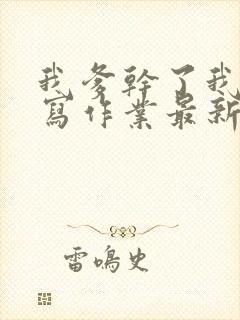 我爹幹了我
寫作業最新
雷鳴史